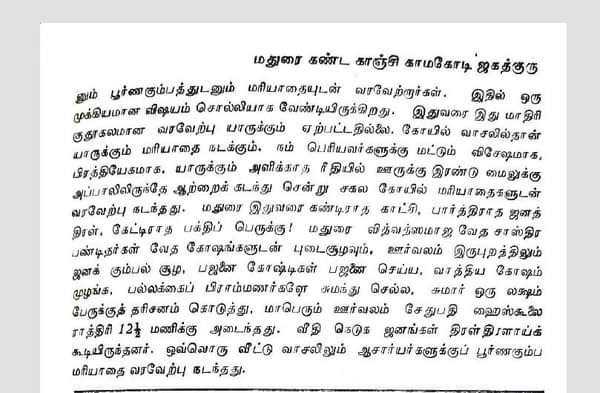 மதுரை கண்ட காஞ்சி காமகோடி ஜகத்குரு
னும் பூர்ணகும்பத்துடனும் மரியாதையுடன் வரவேற்றார்கள். இதில் ஒரு
முக்கியமான விஷயம் சொல்லியாக வேண்டியிருக்கிறது. இதுவரை இது மாதிரி
குதூகலமான வரவேற்பு யாருக்கும் ஏற்பட்டதில்லை. கோயில் வாசலில்தான்
யாருக்கும் மரியாதை நடக்கும். நம் பெரியவர்களுக்கு மட்டும் விசேஷமாக,
பிரத்தியேகமாக, யாருக்கும் அளிக்காத ரீதியில் ஊருக்கு இரண்டு மைலுக்கு
அப்பாலிலிருந்தே ஆற்றைக் கடந்து சென்று சகல கோயில் மரியாதைகளுடன்
வரவேற்பு நடந்தது. மதுரை இதுவரை கண்டிராத காட்சி, பார்த்திராத ஜனத்
திரள், கேட்டிராத பக்திப் பெருக்கு! மதுரை வித்வத்ஸமாஜ வேத சாஸ்திர
பண்டிதர்கள் வேத கோஷங்களுடன் புடைசூழவும், ஊர்வலம் இருபுறத்திலும்
ஜனக் கும்பல் சூழ, பஜனை கோஷ்டிகள் பஜனை செய்ய, வாத்திய கோஷம்
முழங்க, பல்லக்கைப் பிராம்மணர்களே சுமந்து செல்ல, சுமார் ஒரு லக்ஷம்
பேருக்குத் தரிசனம் கொடுத்து, மாபெரும் ஊர்வலம் சேதுபதி ஹைஸ்கூலை
ராத்திரி 12½ மணிக்கு அடைந்தது. வீதி நெடுக ஜனங்கள் திரள்திரளாய்க்
கூடியிருந்தனர். ஒவ்வொரு வீட்டு வாசலிலும் ஆசார்யர்களுக்குப் பூர்ணகும்ப
மரியாதை வரவேற்பு நடந்தது.